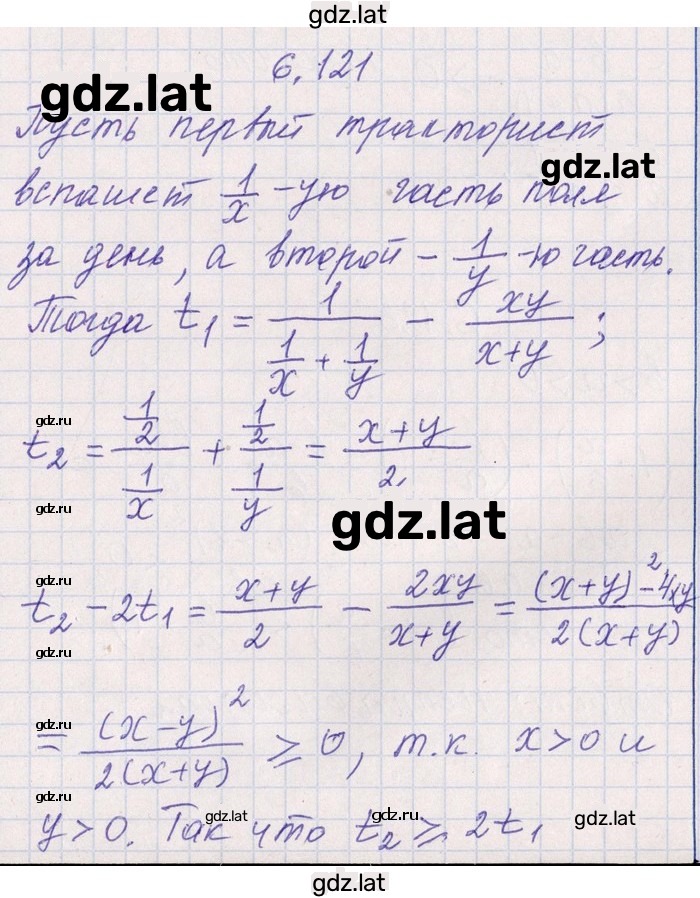 gdz.lat
6.121
gdz.lat
Пусть первый тракторист
gdz.lat
вспашет 1/x -ую часть поля
за день, а второй - 1/y -ю часть.
Тогда t₁ = 1/(1/x + 1/y) - xy/(x+y) ;
gdz.ru
t₂ = (1/2)/(1/x) + (1/2)/(1/y) = (x+y)/2
gdz.ru
gdz.lat
gdz.ru
t₂ - 2t₁ = (x+y)/2 - 2xy/(x+y) = ((x+y)² - 4xy)/(2(x+y))
gdz.ru
gdz.ru
= (x-y)²/(2(x+y)) ⩾ 0, т.к. x>0 и
gdz.ru
gdz.lat
gdz.lat
y>0. Так что t₂ ⩾ 2t₁
gdz.ru
gdz.lat